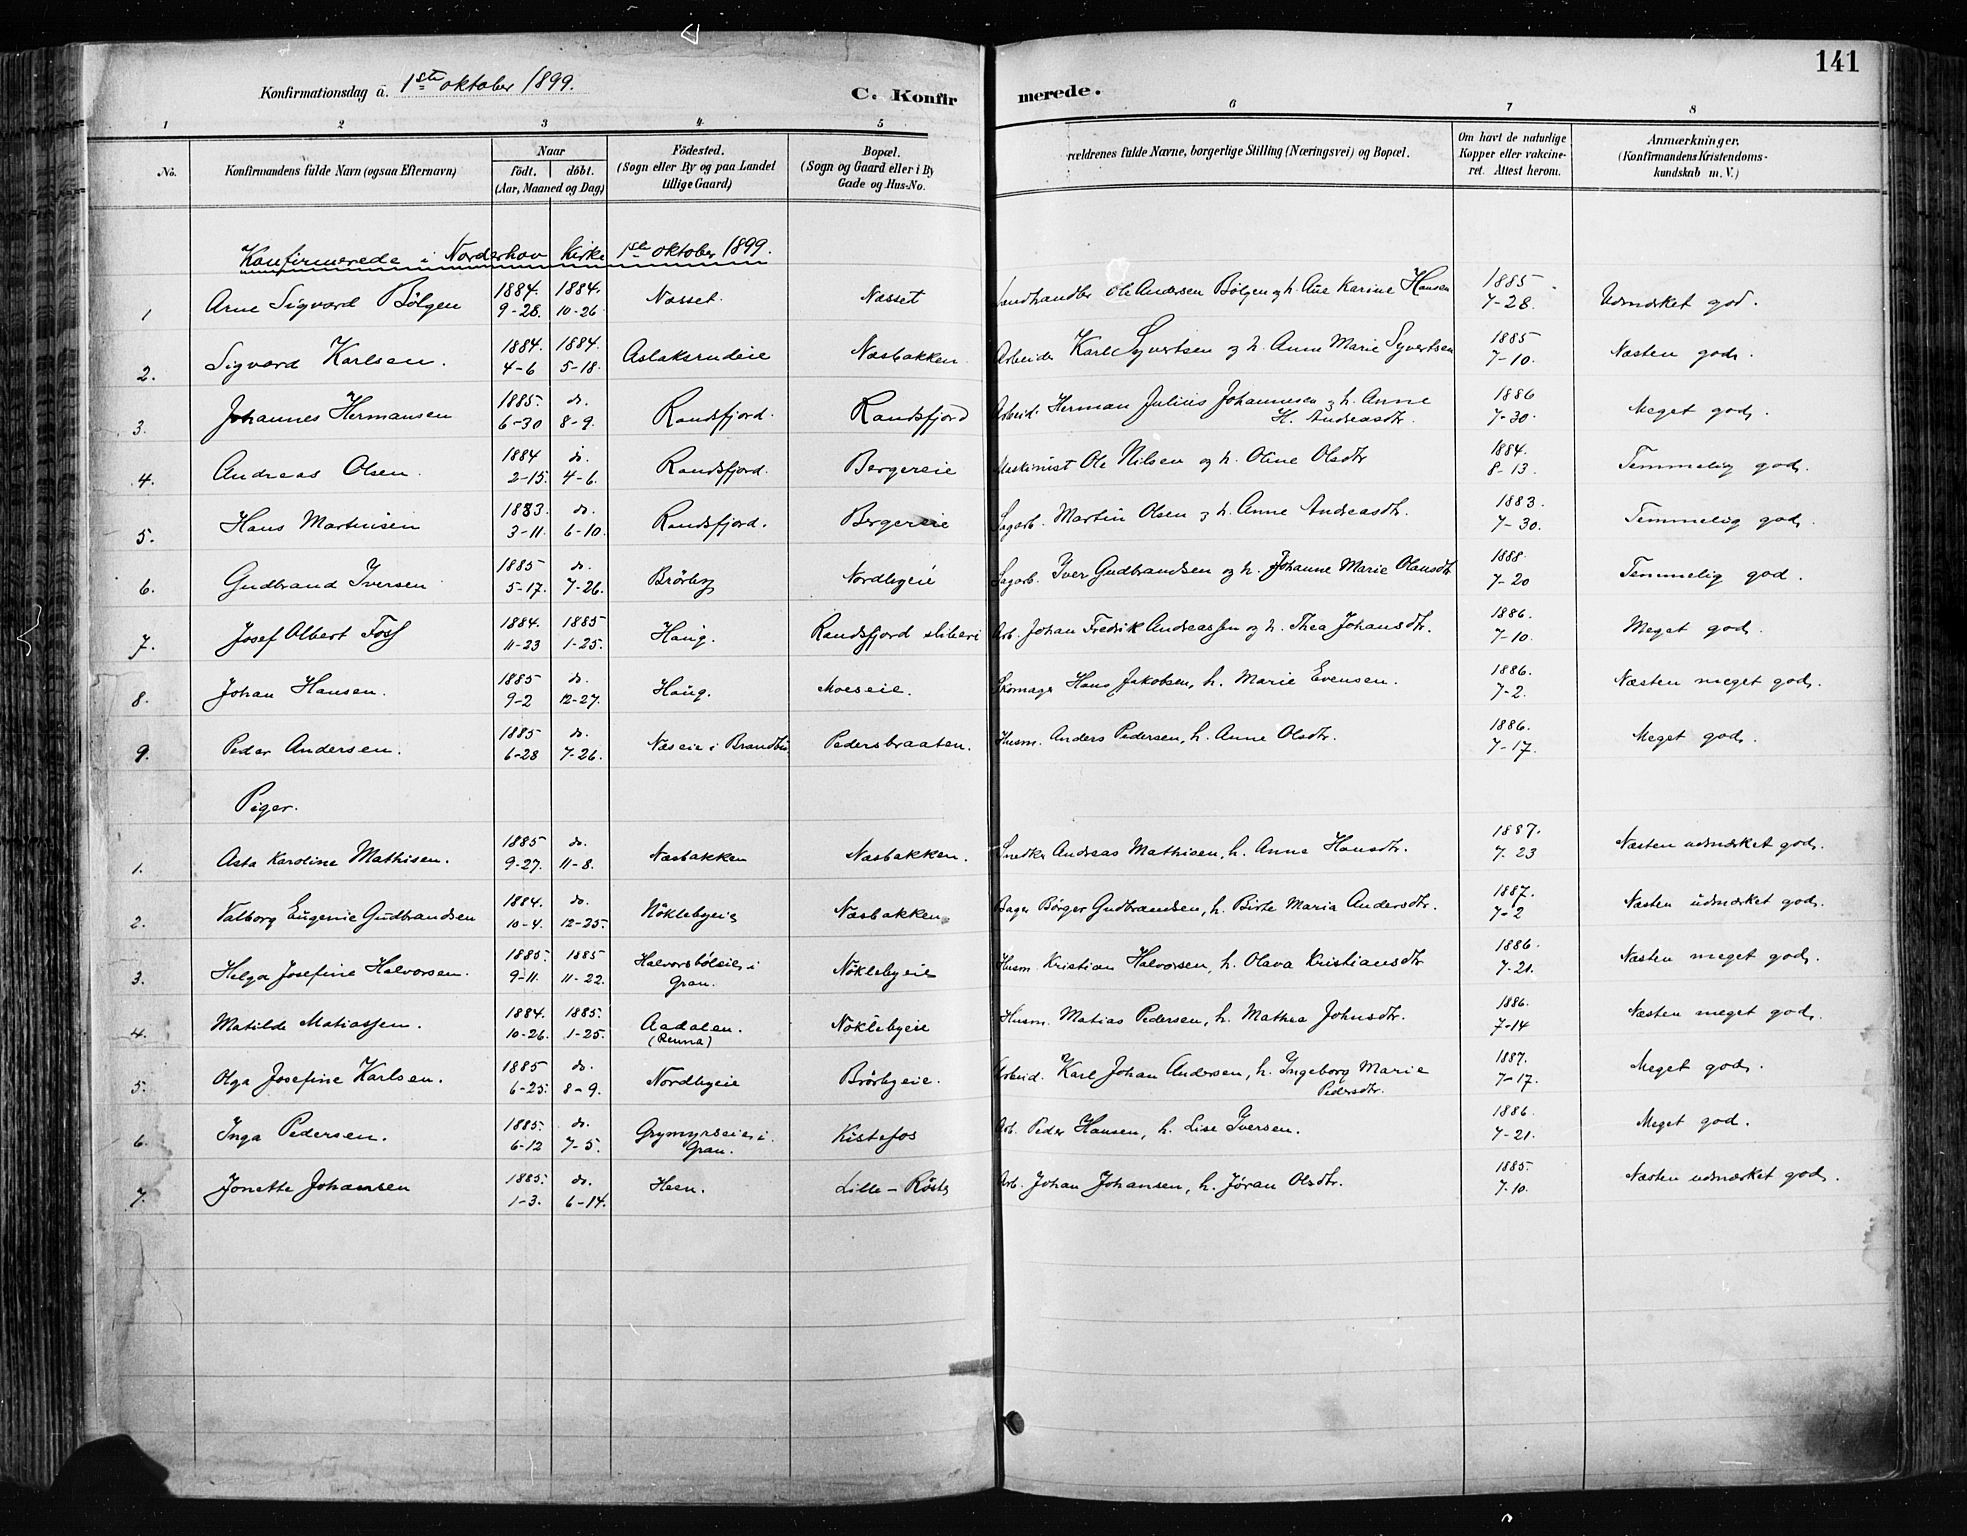 141
Konfirmationsdag a. 1ste oktober 1899.
C. Konfirmerede.
1 2 3 4 5 6 7 8
No. Konfirmandens fulde Navn (ogsaa Efternavn) Naar födt. döbt. (Aar, Maaned og Dag) Födested. (Sogn eller By og paa Landet tillige Gaard) Bopæl. (Sogn og Gaard eller i By Gade og Hus-No. rældrenes fulde Navne, borgerlige Stilling (Næringsvei) og Bopæl. Om havt de naturlige Kopper eller vakcineret. Attest herom. Anmærkninger. (Konfirmandens Kristendomskundskab m. V.)
Konfirmerede i Norderhov Kirke 1ste oktober 1899.
1 Arne Sigvard Bölgen 1884. 9-28. 1884. 10-26 Næsset. Næsset Landhandler Ole Andersen Bölgen og h. Ane Karine Hansen 1885 7-28. Udmærket god.
2. Sigvard Karlsen. 1884. 4-6 1884. 5-18. Aslaksrudeie Næsbakken. Arbeider Karl Syvertsen og h. Anne Marie Syvertsen 1885 7-10. Næsten god.
3. Johannes Hermansen 1885. 6-30 do. 8-9. Randsfjord. Randsfjord Arbeid. Herman Julius Johannesen og h. Anne H. Andreasdtr. 1886 7-30. Meget god.
4. Andreas Olsen. 1884 2-15. do. 4-6. Randsfjord. Bergereie Maskinist Ole Nilsen og h. Oline Olsdtr 1884. 8-13. Temmelig god.
5. Hans Martinsen 1883. 3-11. do. 6-10. Randsfjord. Bergereie Sagarb. Martin Olsen og h. Anne Andreasdtr. 1883. 7-30. Temmelig god.
6. Gudbrand Iversen 1885 5-17. do. 7-26. Brörby Nordbyeie Sagarb. Iver Gudbrandsen og h. Johanne Marie Olausdtr 1888 7-20 Temmelig god.
7. Josef Albert Foss 1884. 11-23 1885 1-25. Haug. Randsfjord sliberi Arb. Johan Fredrik Andreassen og h. Thea Johansdtr. 1886. 7-10. Meget god.
8. Johan Hansen. 1885 9-2 do. 12-27. Haug. Moeseie. Skomager Hans Jakobsen, h. Marie Evensen. 1886. 7-2. Næsten meget god.
9. Peder Andersen. 1885 6-28 do. 7-26. Næseie i Brandbu Pedersbraaten. Husm. Anders Pedersen, h. Anne Olsdtr. 1886. 7-17. Meget god.
Piger.
1. Asta Karoline Mathisen. 1885 9-27. do. 11-8. Næsbakken Næsbakken. Snedker Andreas Mathisen, h. Anne Hansdtr. 1887. 7-23 Næsten udmærket god.
2. Valborg Eugenie Gudbrandsen 1884. 10-4. do. 12-25. Nöklebyeie Næsbakken Bager Börger Gudbrandsen, h. Birte Maria Andersdtr. 1887. 7-2 Næsten udmærket god.
3. Helga Josefine Halvorsen. 1885. 9-11. 1885 11-22. Halvorsböleie i Gran. Nöklebyeie Husm. Kristian Halvorsen, h. Olava Kristiansdtr 1886. 7-21. Næsten meget god.
4. Matilde Matiassen. 1884. 10-26. 1885. 1-25. Aadalen. (Renna) Nöklebyeie Husm. Matias Pedersen, h. Mathea Johnsdtr. 1886. 7-14 Næsten meget god.
5. Olga Josefine Karlsen. 1885 6-25. do. 8-9. Nordbyeie Brörbyeie. Arbeid. Karl Johan Andersen, h. Ingeborg Marie Pedersdtr. 1887. 7-17. Meget god.
6. Inga Pedersen. 1885. 6-12 do. 7-5. Grymyrseie i Gran. Kistefos Arb. Peder Hansen, h. Lise Iversen. 1886 7-21. Meget god.
7. Jonette Johansen 1885. 1-3. do. 6-14. Heen. Lille-Röste Arb. Johan Johansen, h. Jöran Olsdtr. 1885. 7-10. Næsten udmærket god.